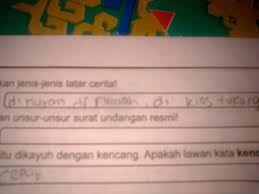 kan jenis-jenis latar cerita!
di rumah, di
an unsur-unsur surat undangan resmi!
itu dikayuh dengan kencang. Apakah lawan kata kenc